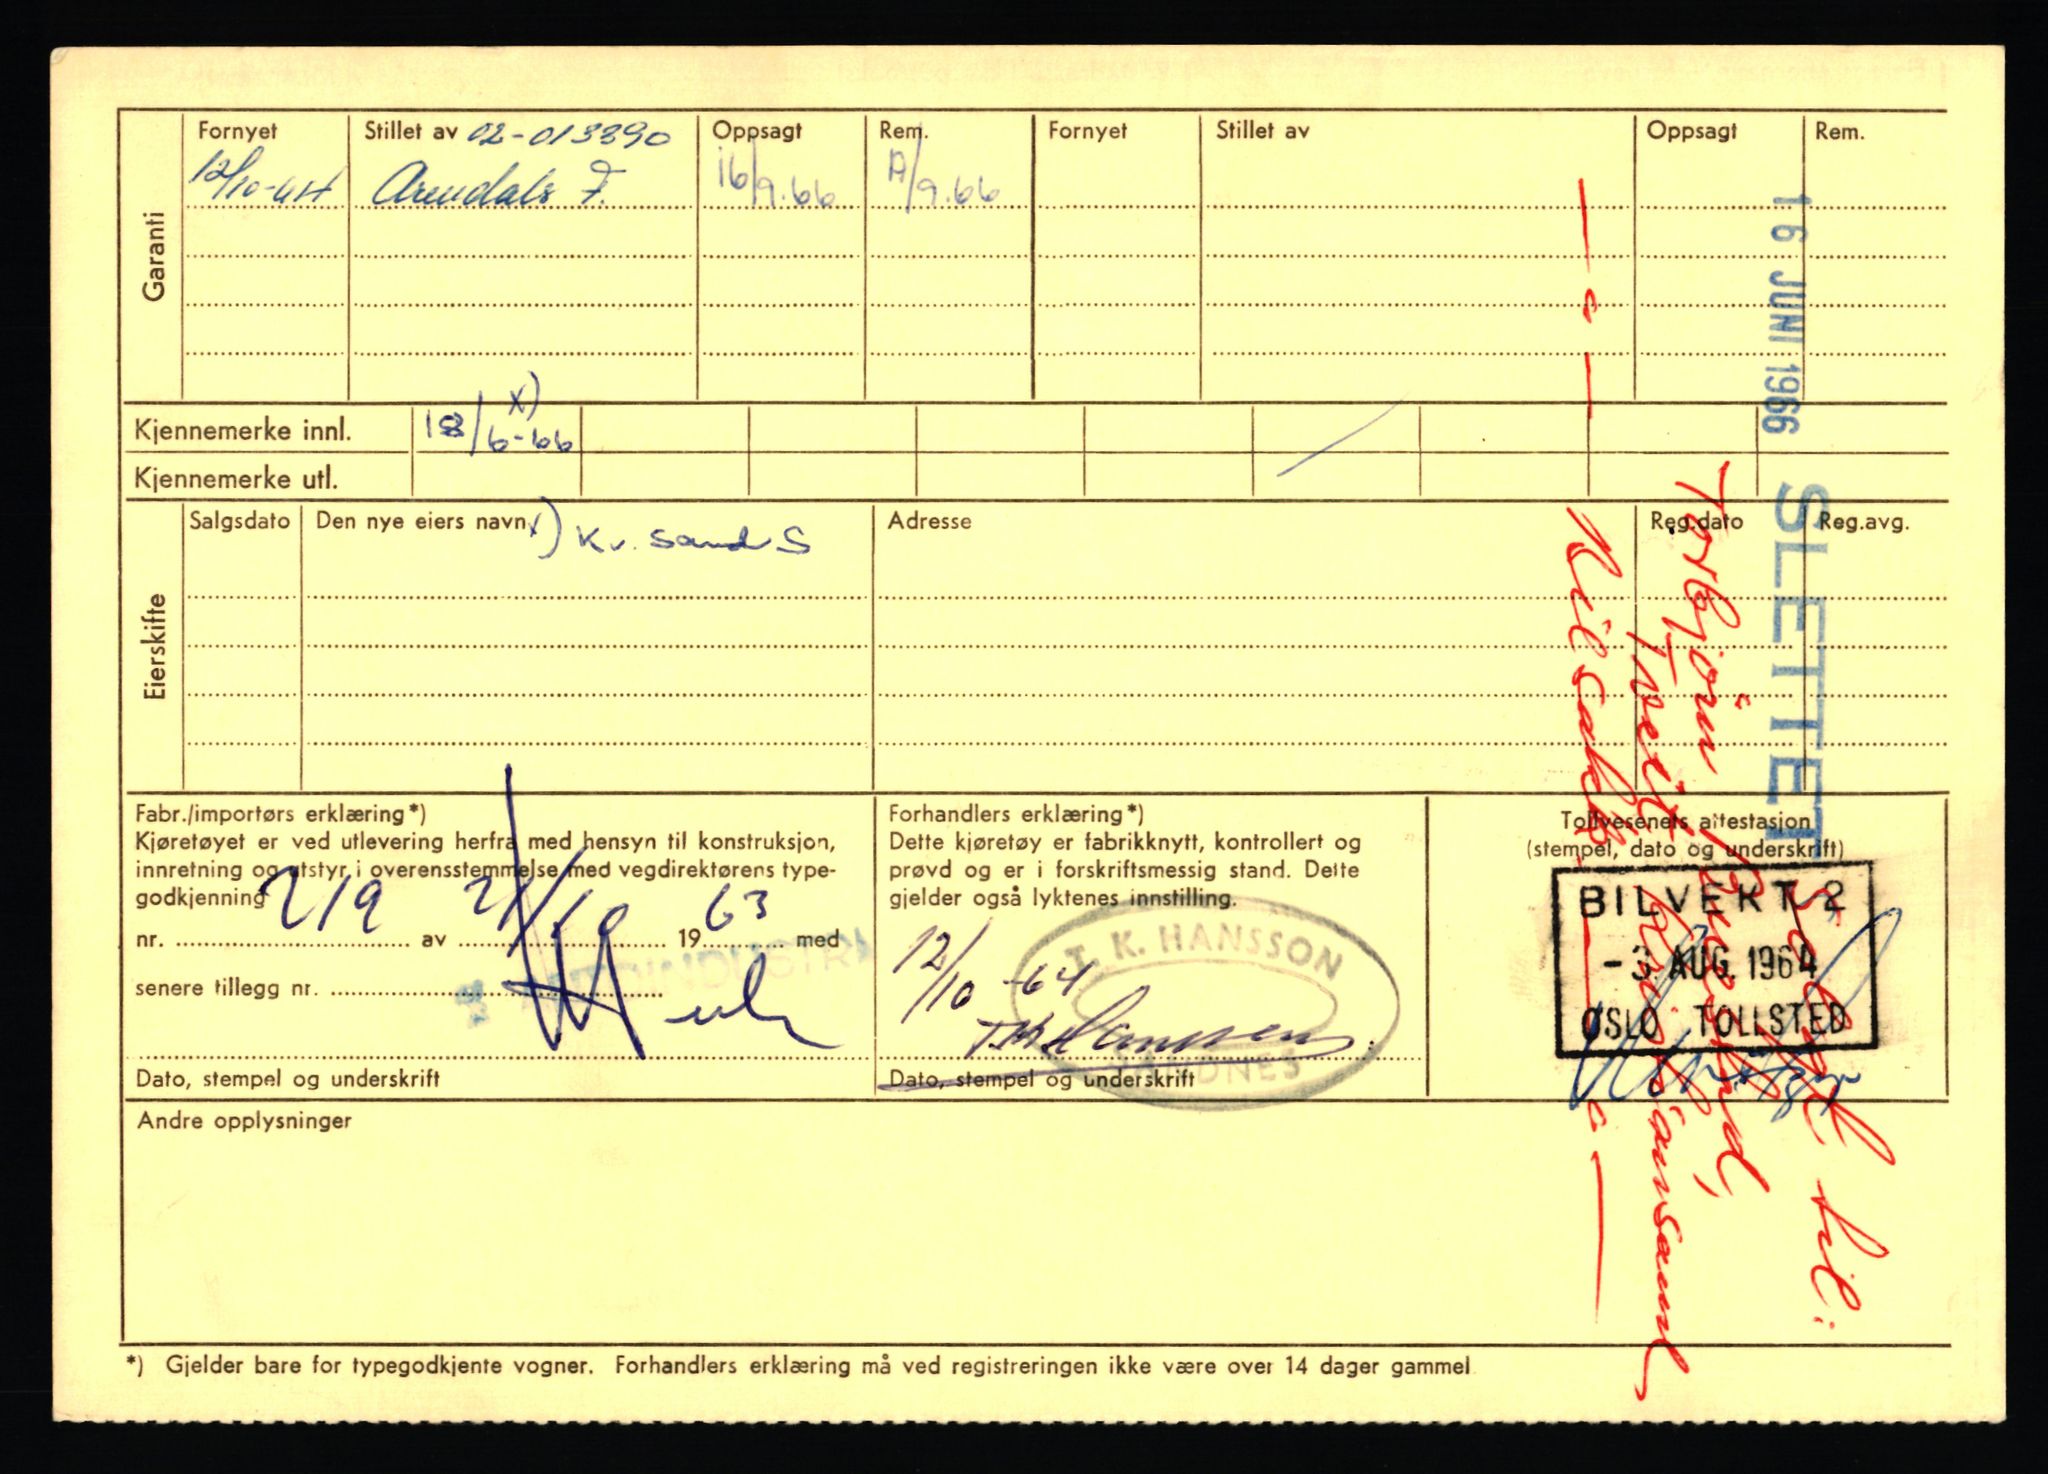 Garanti
Fornyet Stillet av 02-013390 Oppsagt Rem. Fornyet Stillet av Oppsagt Rem.
12/10-64 Arendals F. 16/9.66 A/9.66
16 JUNI 1966
SLETTET
Kjennemerke innl. 18/6-66 x)
Kjennemerke utl.
Eierskifte
Salgsdato Den nye eiers navn x) Kr. sand S Adresse Reg.dato Reg.avg.
Fabr./importørs erklæring*)
Kjøretøyet er ved utlevering herfra med hensyn til konstruksjon,
innretning og utstyr i overensstemmelse med vegdirektørens type-
godkjenning
nr. 219 av 21/ 19 63 med
senere tillegg nr.
Dato, stempel og underskrift
Forhandlers erklæring*)
Dette kjøretøy er fabrikknytt, kontrollert og
prøvd og er i forskriftsmessig stand. Dette
gjelder også lyktenes innstilling.
12/10-64
T. K. HANSSON
Dato, stempel og underskrift
Tollvesenets attestasjon
(stempel, dato og underskrift)
BILVEKT 2
- 3. AUG. 1964
OSLO TOLLSTED
Solgt til:
Torbjörn
Tveit,
Kristiansand
Andre opplysninger
*) Gjelder bare for typegodkjente vogner. Forhandlers erklæring må ved registreringen ikke være over 14 dager gammel